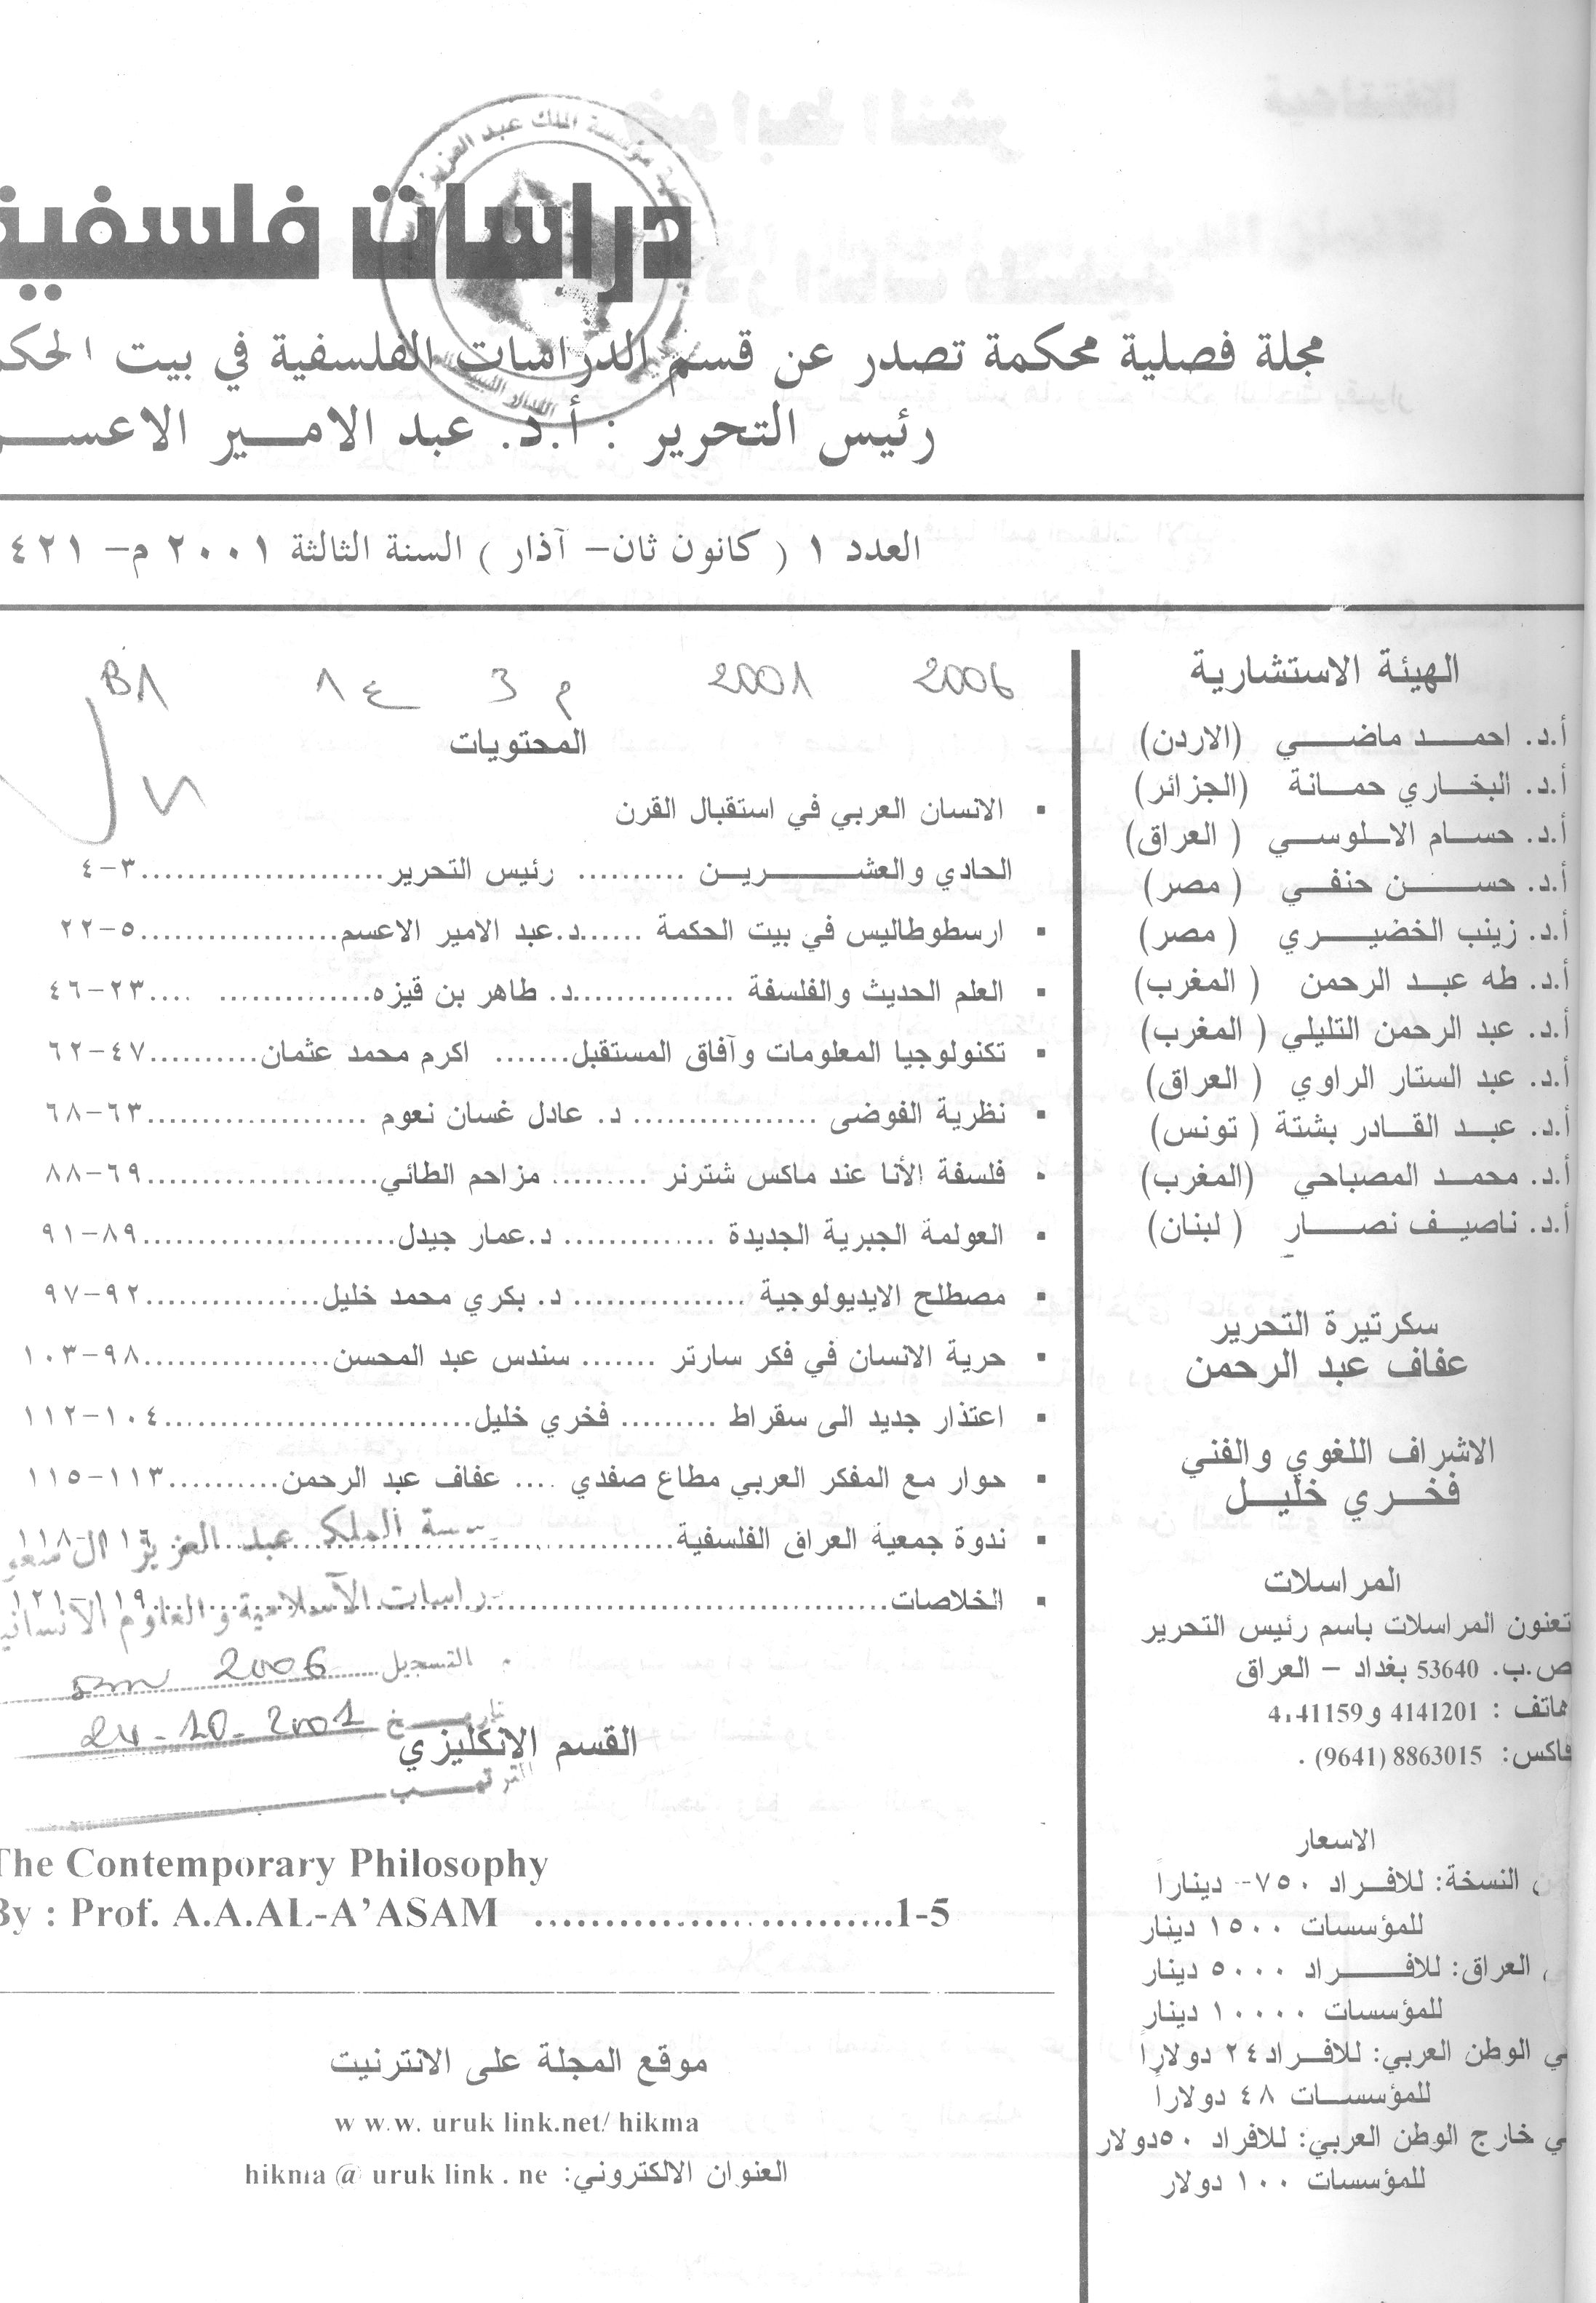 دراسات فلسفية
مجلة فصلية محكمة تصدر عن قسم الدراسات الفلسفية في بيت الحكم
رئيس التحرير : أ.د. عبد الامير الاعسم
العدد ١ ( كانون ثان– آذار ) السنة الثالثة ٢٠٠١ م– ٤٢١
الهيئة الاستشارية
أ.د. احمد ماضي (الاردن)
أ.د. البخاري حمانة (الجزائر)
أ.د. حسام الالوسي ( العراق)
أ.د. حسن حنفي ( مصر)
أ.د. زينب الخضيري ( مصر)
أ.د. طه عبد الرحمن ( المغرب)
أ.د. عبد الرحمن التليلي ( المغرب)
أ.د. عبد الستار الراوي ( العراق)
أ.د. عبد القادر بشتة ( تونس)
أ.د. محمد المصباحي (المغرب)
أ.د. ناصيف نصار ( لبنان)
سكرتيرة التحرير
عفاف عبد الرحمن
الاشراف اللغوي والفني
فخري خليل
المراسلات
تعنون المراسلات باسم رئيس التحرير
ص.ب. 53640 بغداد – العراق
هاتف : 4141201 و4141159
فاكس: 8863015 (9641) .
الاسعار
النسخة: للافراد ٧٥٠– ديناراً
للمؤسسات ١٥٠٠ دينار
العراق: للافراد ٥٠٠٠ دينار
للمؤسسات ١٠٠٠٠ دينار
ي الوطن العربي: للافراد٢٤ دولاراً
للمؤسسات ٤٨ دولاراً
ي خارج الوطن العربي: للافراد ٥٠دولار
للمؤسسات ١٠٠ دولار
2006 2001 م 3 ع 1 B1
المحتويات
▪ الانسان العربي في استقبال القرن
الحادي والعشرين .......... رئيس التحرير.....................٣–٤
▪ ارسطوطاليس في بيت الحكمة ......د.عبد الامير الاعسم.................٥–٢٢
▪ العلم الحديث والفلسفة ..............د. طاهر بن قيزه............. ....٢٣–٤٦
▪ تكنولوجيا المعلومات وآفاق المستقبل....... اكرم محمد عثمان..........٤٧–٦٢
▪ نظرية الفوضى ................ د. عادل غسان نعوم ...................٦٣–٦٨
▪ فلسفة الأنا عند ماكس شترنر ......... مزاحم الطائي....................٦٩–٨٨
▪ العولمة الجبرية الجديدة .............. د.عمار جيدل......................٨٩–٩١
▪ مصطلح الايديولوجية ............... د. بكري محمد خليل...............٩٢–٩٧
▪ حرية الانسان في فكر سارتر ....... سندس عبد المحسن................٩٨–١٠٣
▪ اعتذار جديد الى سقراط ......... فخري خليل...........................١٠٤–١١٢
▪ حوار مع المفكر العربي مطاع صفدي .... عفاف عبد الرحمن..........١١٣–١١٥
▪ ندوة جمعية العراق الفلسفية............................................١١٦–١١٨
▪ الخلاصات................................................................١١٩–١٢١
سة الملك عبد العزيز ال سعو
دراسات الاسلامية والعلوم الانساني
التسجيل 2006
تاريخ 24-10-2001
الترتيب
القسم الانكليزي
The Contemporary Philosophy
By : Prof. A.A.AL-A’ASAM ............................1-5
موقع المجلة على الانترنيت
w w.w. uruk link.net/ hikma
العنوان الالكتروني: hikma @ uruk link . ne